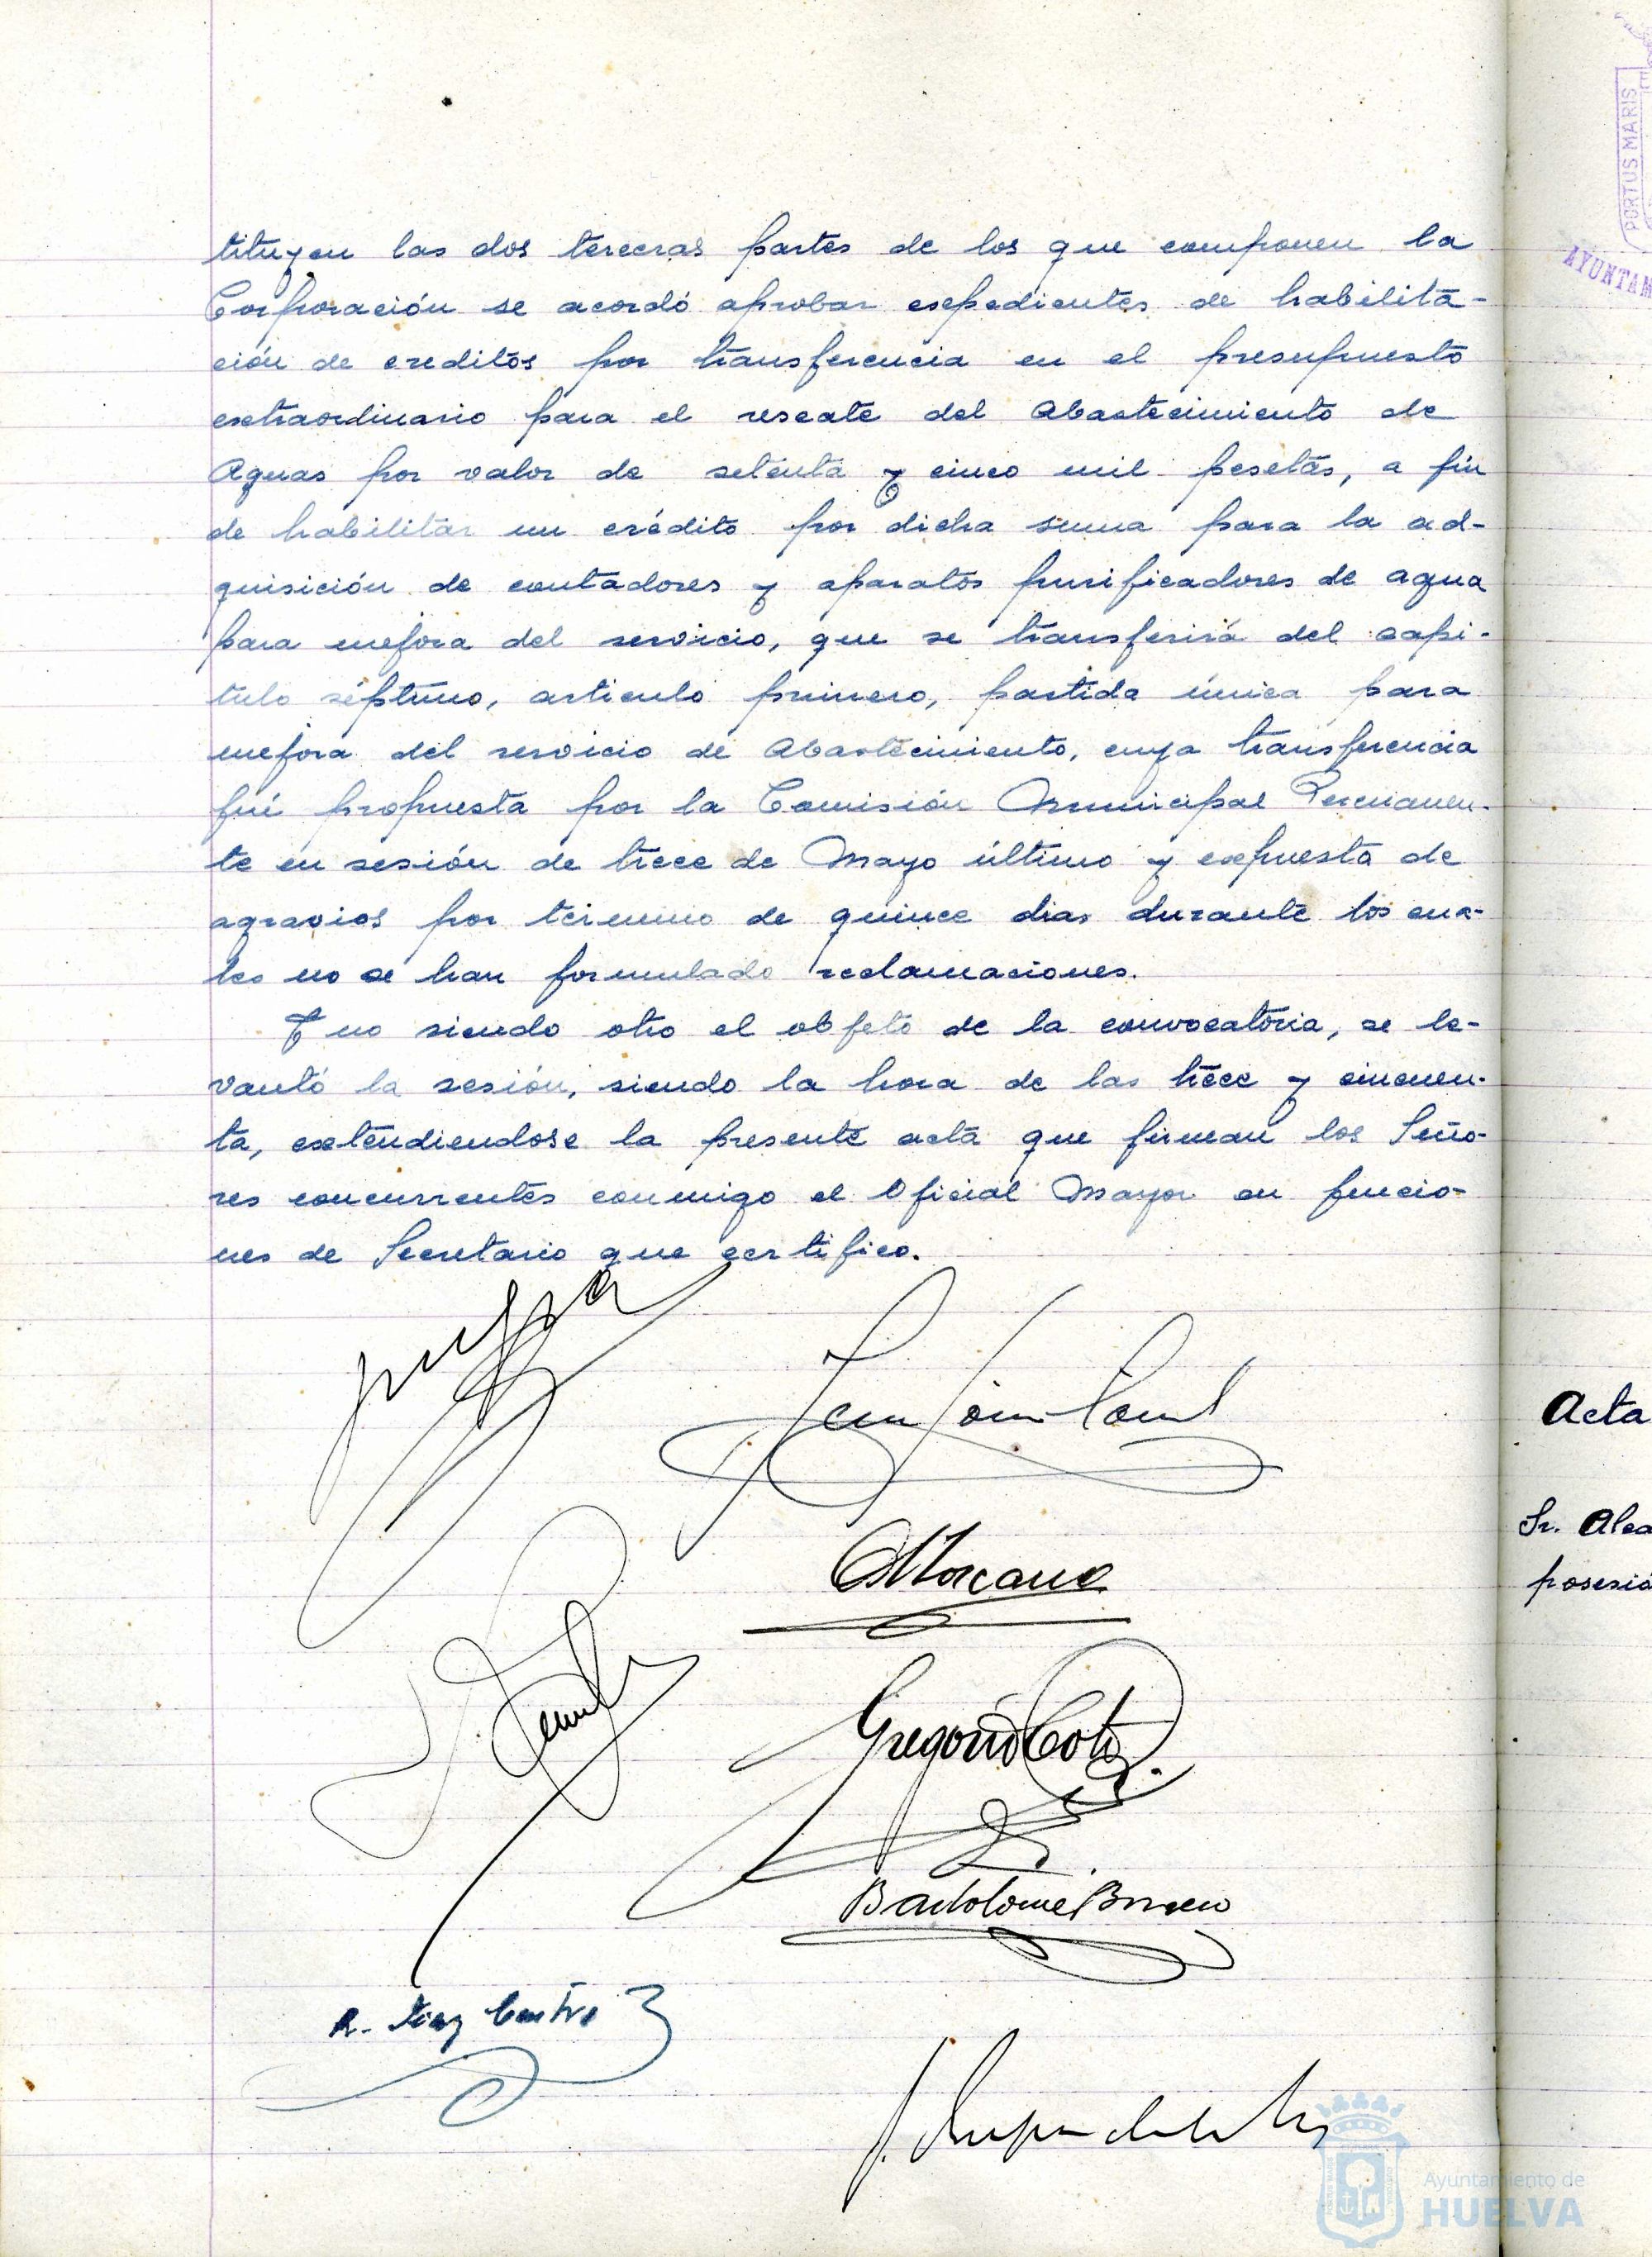 tituyen las dos terceras partes de los que componen la
Corporación se acordó aprobar expedientes de habilita-
ción de creditos por transferencia en el presupuesto
extraordinario para el rescate del Abastecimiento de
Aguas por valor de setenta y cinco mil pesetas, a fin
de habilitar un crédito por dicha suma para la ad-
quisición de contadores y aparatos purificadores de agua
para mejora del servicio, que se transferirá del capi-
tulo séptimo, articulo primero, partida única para
mejora del servicio de Abastecimiento, cuya transferencia
fué propuesta por la Comisión Municipal Permanen-
te en sesión de trece de Mayo último y expuesta de
agravios por término de quince dias durante los cua-
les no se han formulado reclamaciones.
Y no siendo otro el objeto de la convocatoria, se le-
vantó la sesión, siendo la hora de las trece y cincuen-
ta, extendiendose la presente acta que firman los Seño-
res concurrentes conmigo el Oficial Mayor en funcio-
nes de Secretario que certifico.
Gregorio
Bartolome
R. Diaz Castro
PORTUS MARIS
AYUNTAM
Acta
Sr. Alca
posesió
Ayuntamiento de
HUELVA